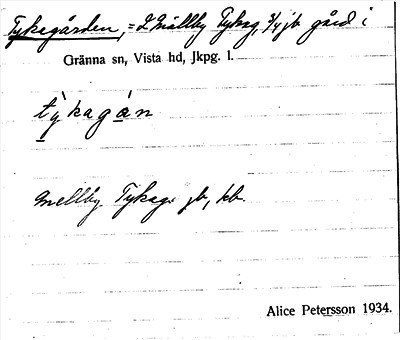 Tykagården, = 2 Mällby Tykag, 3/4 jb gård i
Gränna sn, Vista hd, Jkpg. l.
tỳkagàn
Mellby Tykag. jb, kb.
Alice Petersson 1934.